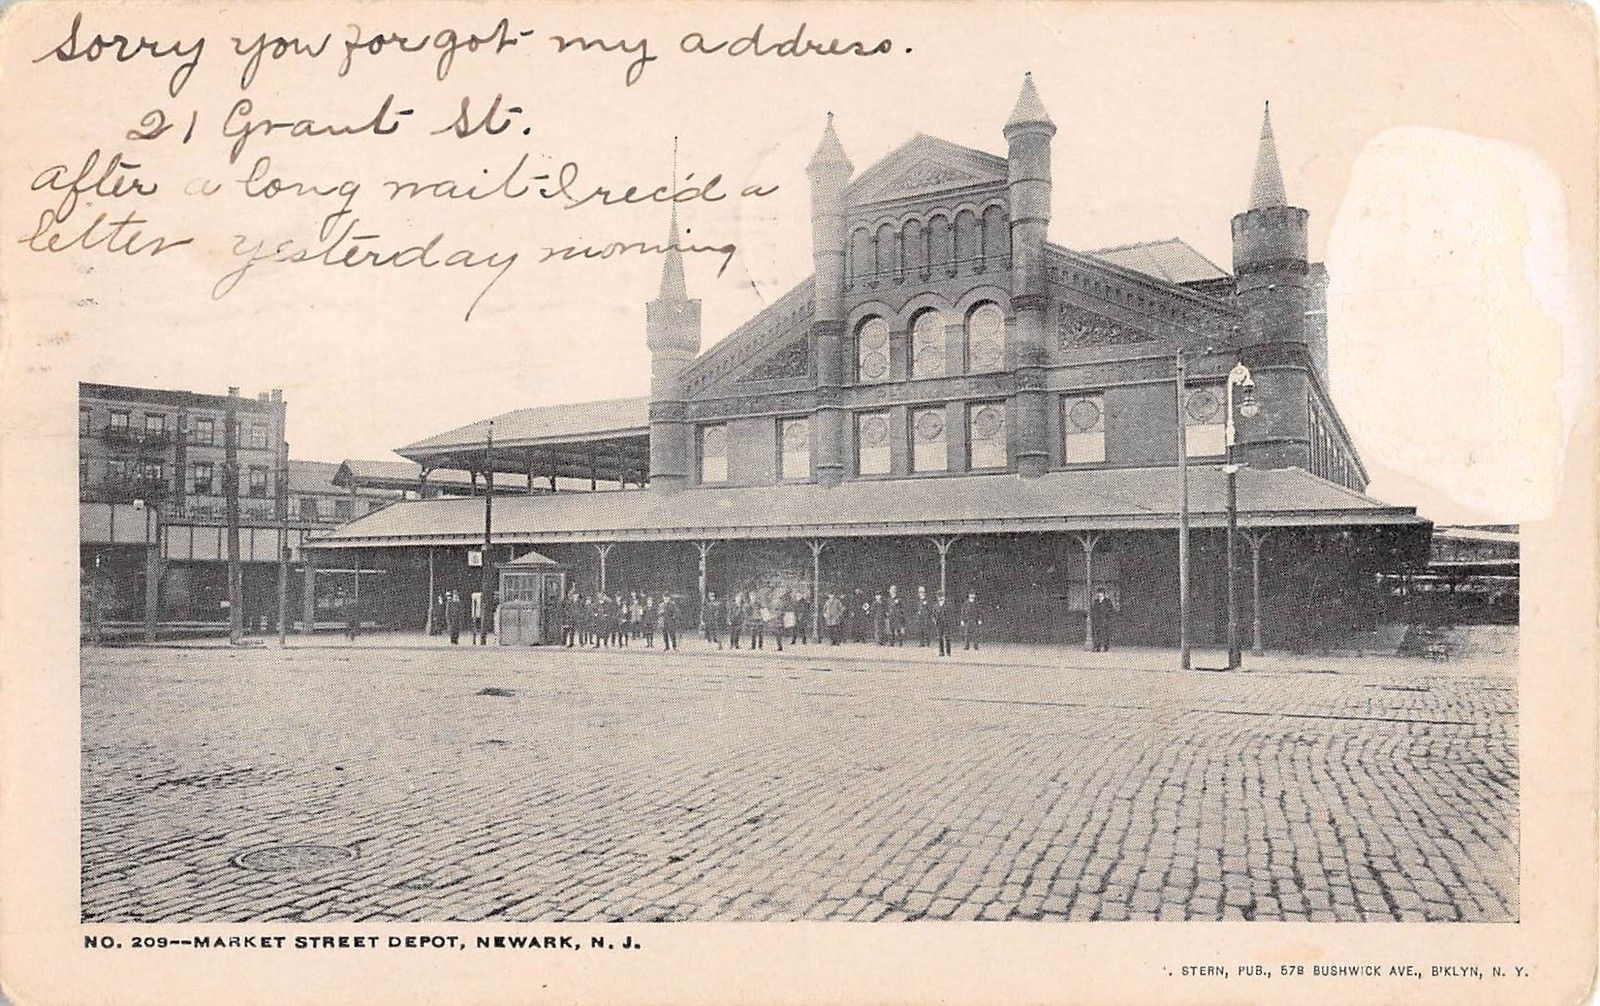 Sorry you forgot my address.
21 Grant St.
after a long wait I rec'd a
letter yesterday morning
NO. 209--MARKET STREET DEPOT, NEWARK, N. J.
. STERN, PUB., 578 BUSHWICK AVE., B'KLYN, N. Y.